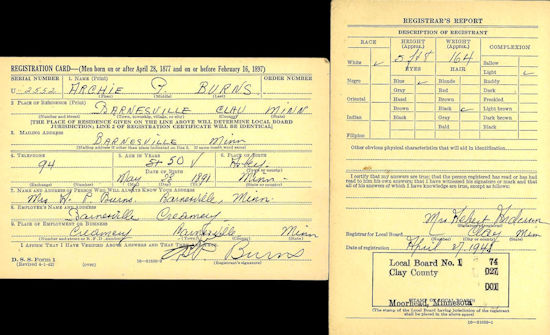 REGISTRATION CARD—(Men born on or after April 28, 1877 and on or before February 16, 1897)
SERIAL NUMBER 1. NAME (Print) ORDER NUMBER
U 2552 ARCHIE P. BURNS
(First) (Middle) (Last)
2. PLACE OF RESIDENCE (Print)
BARNESVILLE CLAY MINN
(Number and street) (Town, township, village, or city) (County) (State)
[THE PLACE OF RESIDENCE GIVEN ON THE LINE ABOVE WILL DETERMINE LOCAL BOARD
JURISDICTION; LINE 2 OF REGISTRATION CERTIFICATE WILL BE IDENTICAL]
3. MAILING ADDRESS
Barnesville Minn
[Mailing address if other than place indicated on line 2. If same insert word same]
4. TELEPHONE 5. AGE IN YEARS 6. PLACE OF BIRTH
94 50
DATE OF BIRTH
May 1891 Minn
(Exchange) (Number) (Mo.) (Day) (Yr.) (State or country)
7. NAME AND ADDRESS OF PERSON WHO WILL ALWAYS KNOW YOUR ADDRESS
Mrs Burns. Barnesville, Minn.
8. EMPLOYER'S NAME AND ADDRESS
Barnesville Creamery
9. PLACE OF EMPLOYMENT OR BUSINESS
Creamery Barnesville Minn
(Number and street or R. F. D. number) (Town) (County) (State)
I AFFIRM THAT I HAVE VERIFIED ABOVE ANSWERS AND THAT THEY ARE TRUE.
D. S. S. Form 1
(Revised 4-1-42) (over) 16—21630-2 Burns
(Registrant's signature)
REGISTRAR'S REPORT
DESCRIPTION OF REGISTRANT
RACE HEIGHT (Approx.) WEIGHT (Approx.) COMPLEXION
164
White EYES HAIR Sallow
Light
Negro Blue Blonde Ruddy
Gray Red Dark
Oriental Hazel Brown Freckled
Brown Black Light brown
Indian Black Gray Dark brown
Bald Black
Filipino
Other obvious physical characteristics that will aid in identification
I certify that my answers are true; that the person registered has read or has had
read to him his own answers; that I have witnessed his signature or mark and that
all of his answers of which I have knowledge are true, except as follows:
Mrs
Registrar for Local Board Clay Minn
(Number) (City or county) (State)
Date of registration April 27, 1942
Local Board No. 1 74
Clay County 027
001
Moorhead, Minnesota
(STAMP OF LOCAL BOARD)
(The stamp of the Local Board having jurisdiction of the registrant
shall be placed in the above space)